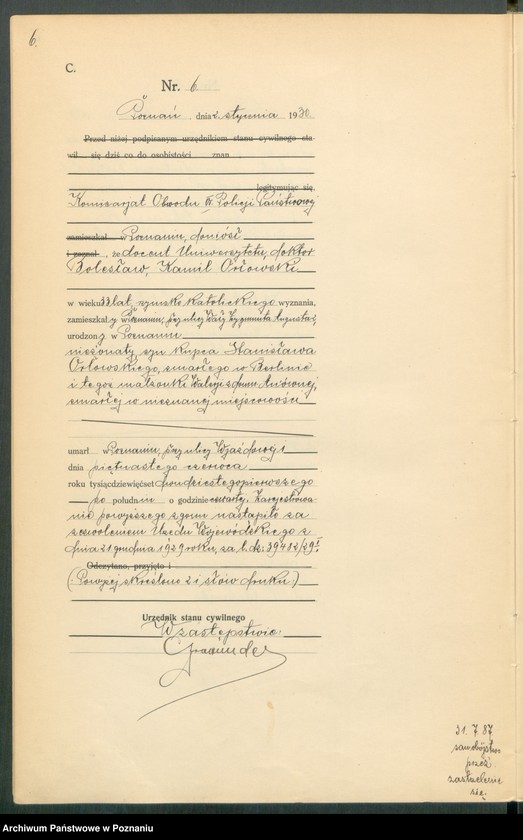 6.
C.
Nr. 6
Poznań, dnia 2. stycznia 1930
Przed niżej podpisanym urzędnikiem stanu cywilnego sta
wił się dziś co do osobistości znan
legitymując się
Komisarjat Obwodu IV. Policji Państwowej
zamieszkał w Poznaniu, doniósł
i poznał, że docent Uniwersytetu, doktor
Bolesław, Kamil Orłowski
w wieku lat, rzymsko katolickiego wyznania,
zamieszkały w Poznaniu, przy ulicy Wały Zygmunta Augusta
urodzony w Poznaniu
nieżonaty, syn kupca Stanisława
Orłowskiego, zmarłego w Berlinie
i tegoż małżonki Walerji z domu
zmarłej w nieznanej miejscowości
umarł w Poznaniu, przy ulicy Wjazdowej
dnia piętnastego czerwca
roku tysiącdziewięćset dwudziestegopierwszego
po południu o godzinie czwartej. Zarejestrowa-
nie powyższego zgonu nastąpiło za
zezwoleniem Urzędu Wojewódzkiego z
dnia 21 grudnia 1929 roku, za l. dz: 39482/29 I
Odczytano, przyjęto i
(Powyżej skreślono 21 słów druku.)
Urzędnik stanu cywilnego
W zastępstwie:
31. 7. 87
samobójstwo
przez
zastrzelenie
się.
Archiwum Państwowe w Poznaniu